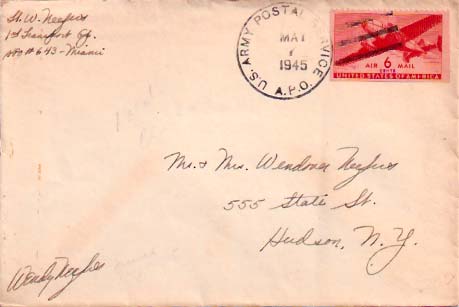 Lt. W. Neefus
1st Transport Gp.
APO #643 - Miami
U.S. ARMY POSTAL SERVICE
MAY
7
1945
A.P.O.
AIR 6 MAIL
CENTS
UNITED STATES OF AMERICA
Mr. & Mrs. Wendover Neefus
555 State St.
Hudson, N.Y.
Wendy Neefus